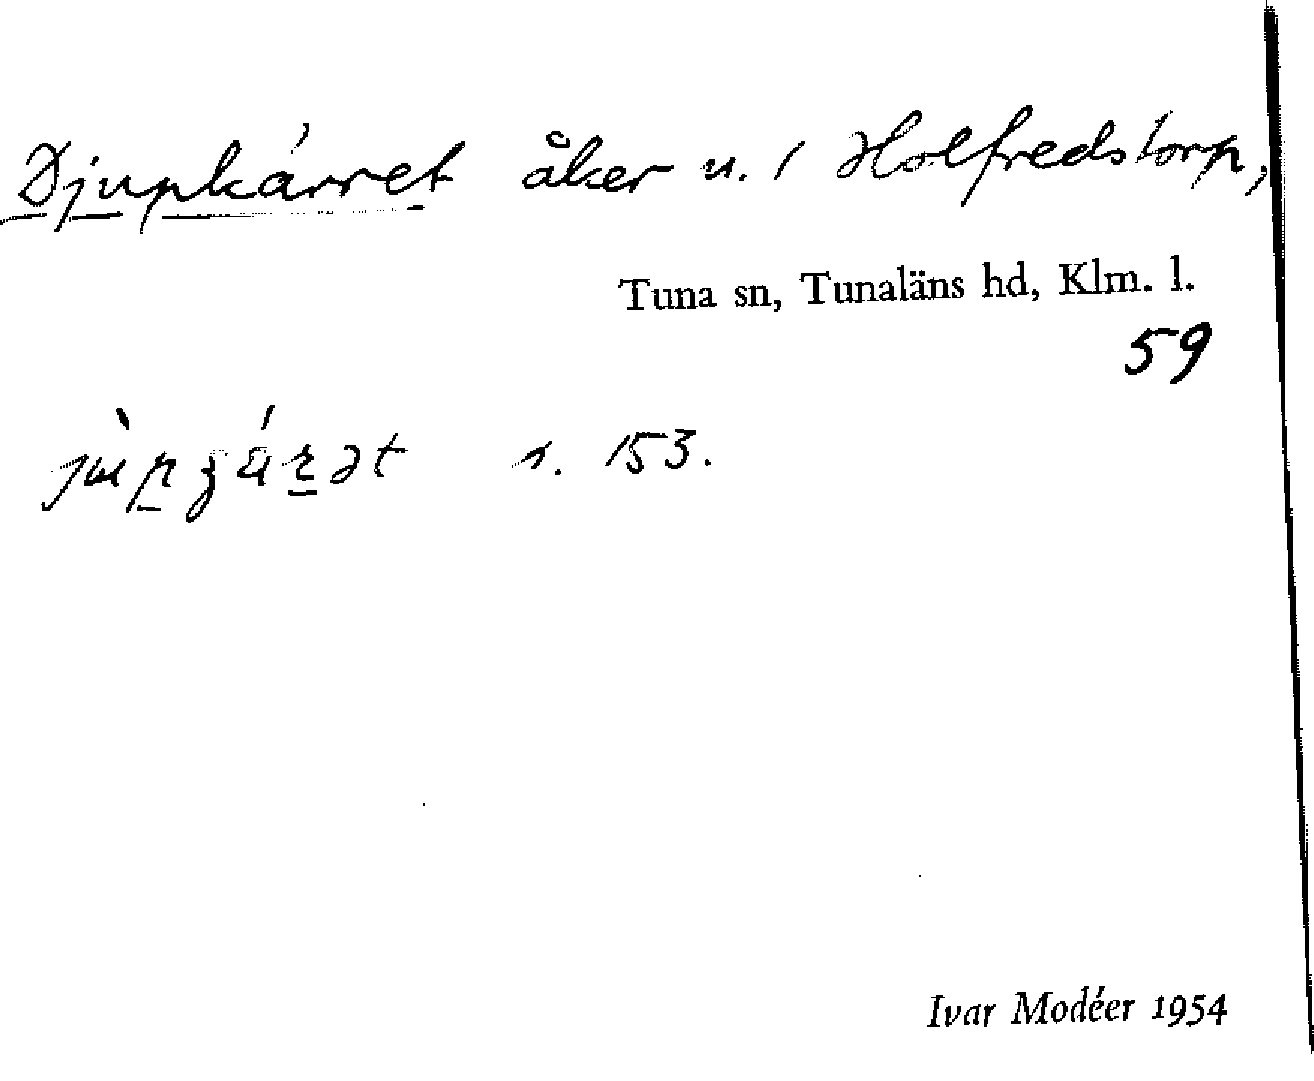 Djupkärret åker u. 1 Holfredstorp,
Tuna sn, Tunaläns hd, Klm. l.
59
s. 153.
Ivar Modéer 1954